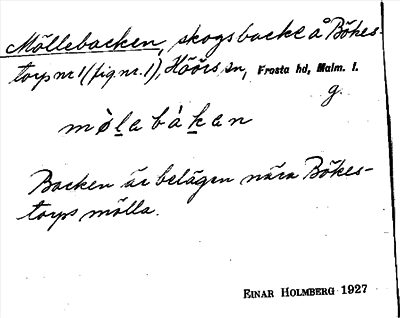 Möllebacken, skogsbacke å Bökes-
torp nr 1 (fig. nr. 1), Höörs sn, Frosta hd, Malm. l.
g.
mòḻabàḵan
Backen är belägen nära Bökes-
torps mölla.
EINAR HOLMBERG 1927